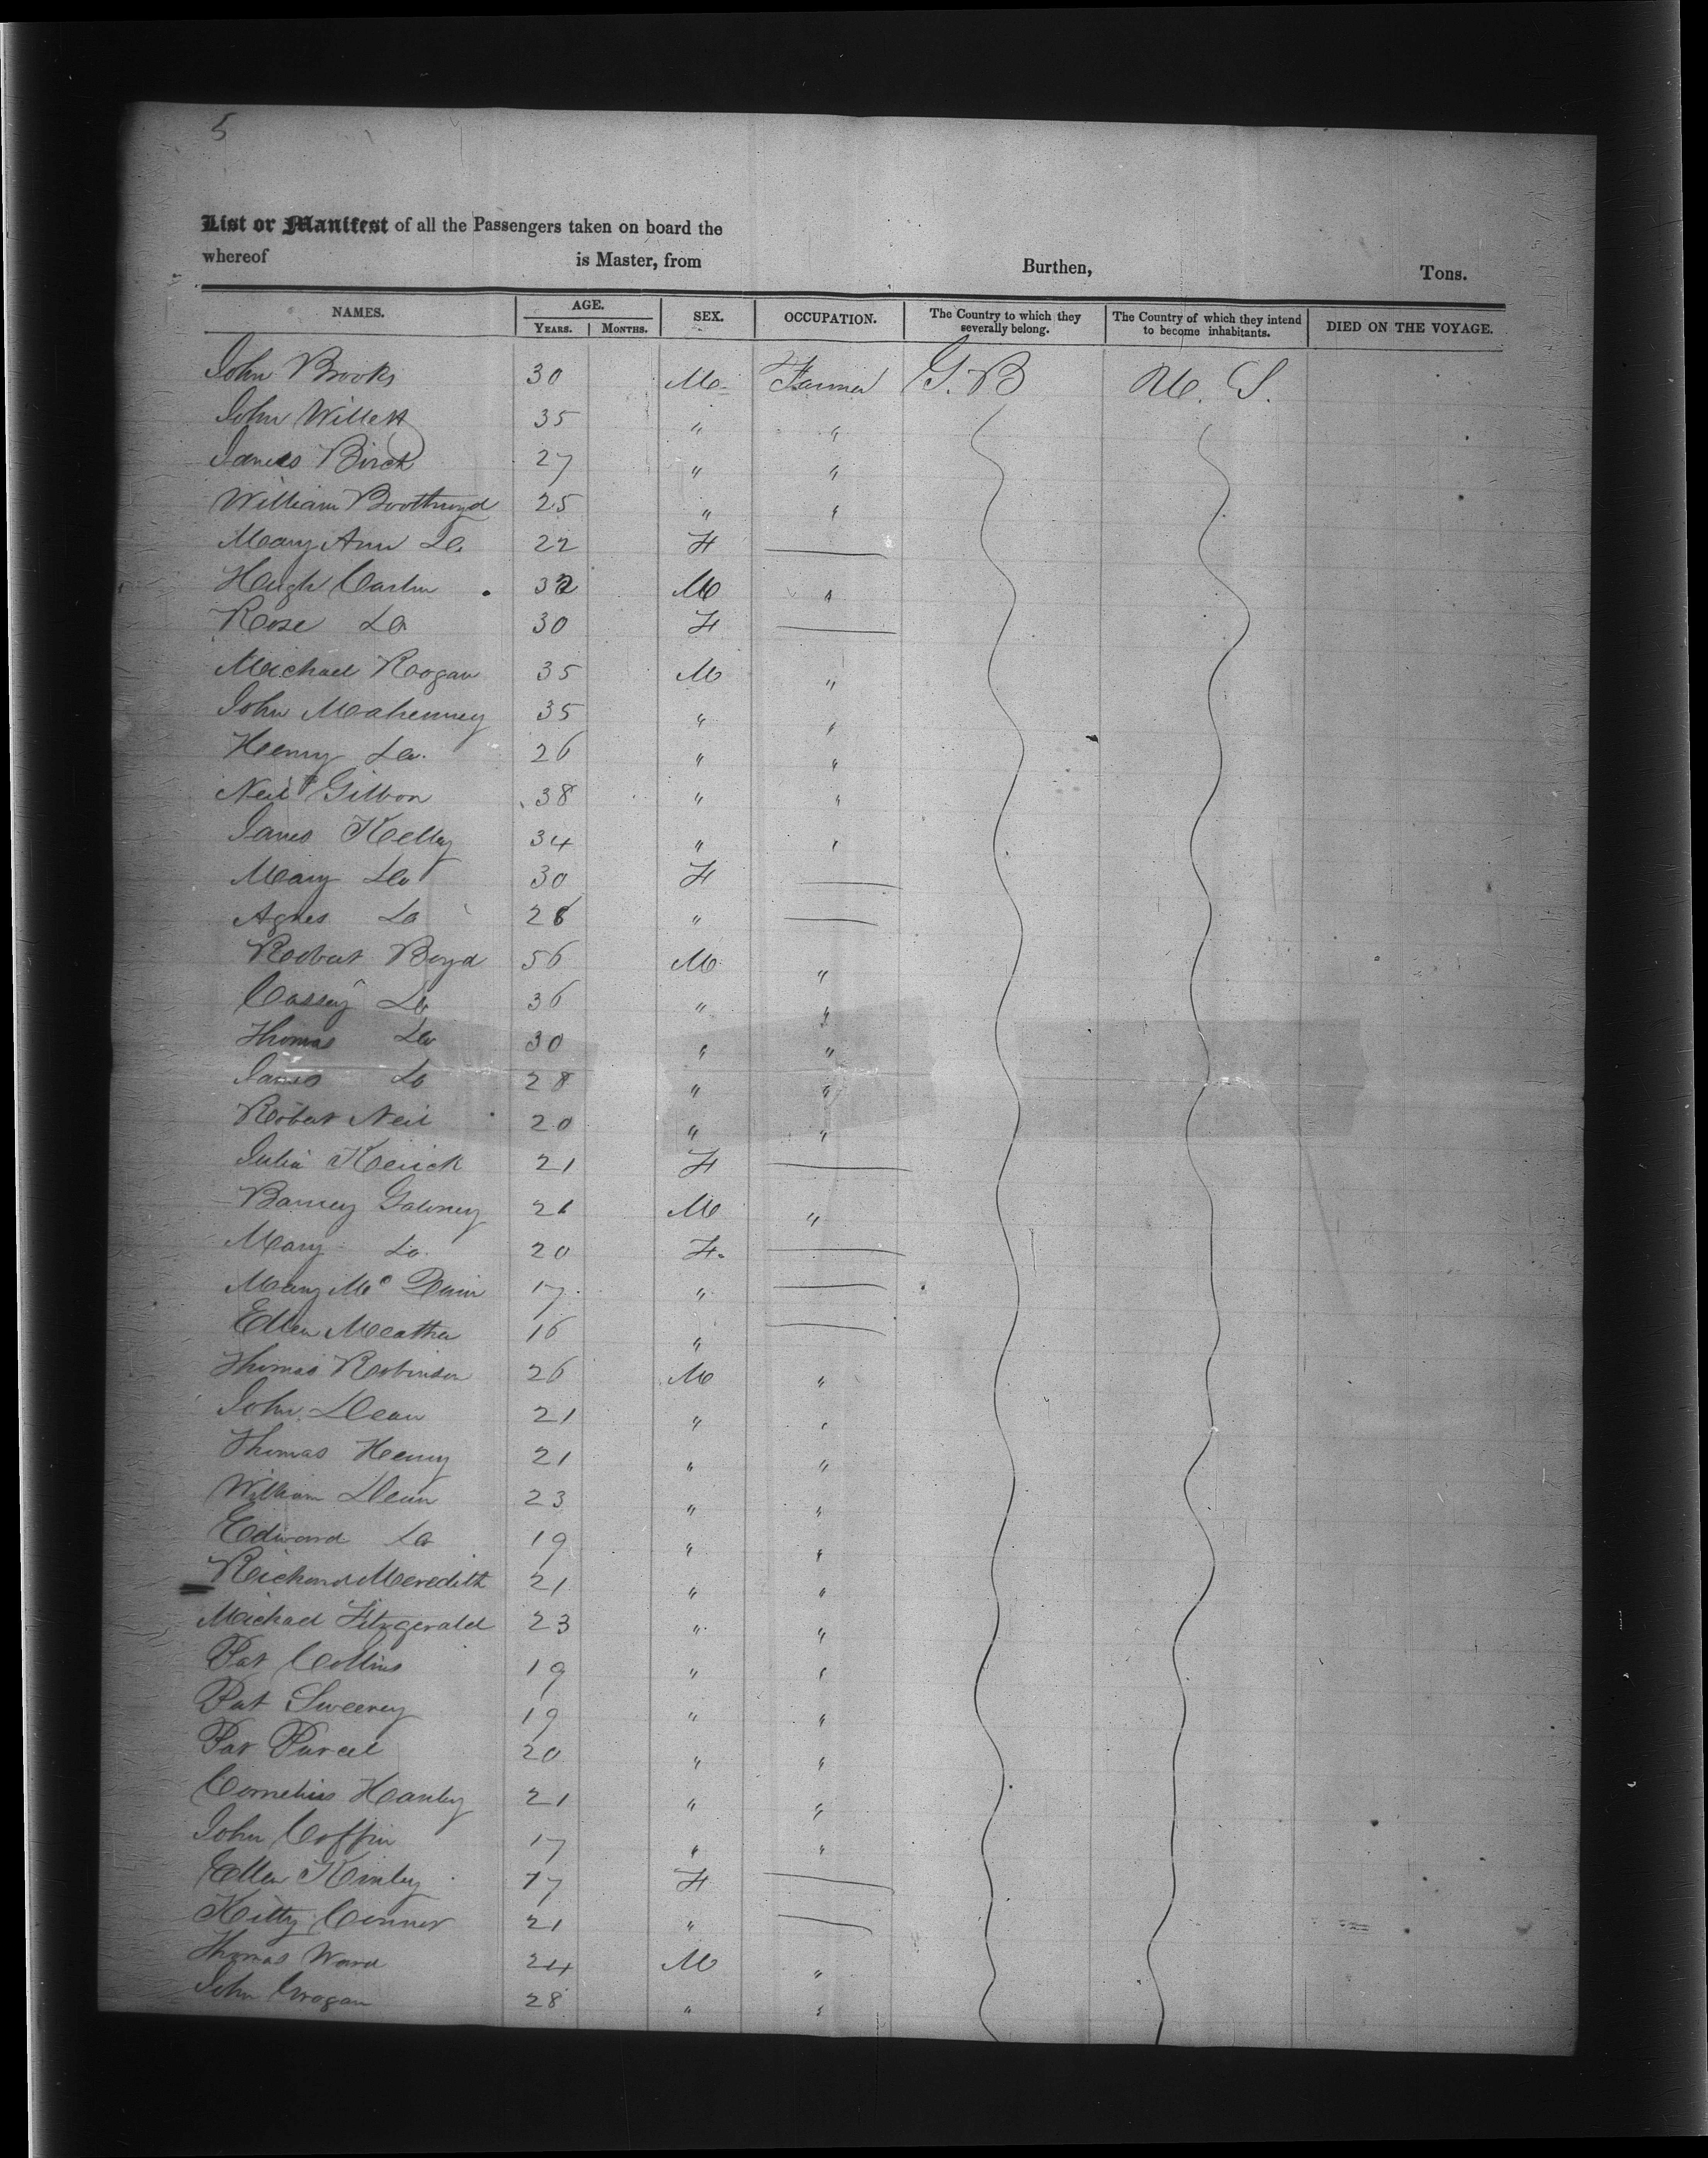 5
List or Manifest of all the Passengers taken on board the
whereof is Master, from Burthen, Tons.
NAMES. AGE. SEX. OCCUPATION. The Country to which they severally belong. The Country of which they intend to become inhabitants. DIED ON THE VOYAGE.
YEARS. MONTHS.
John Brooks 30 M Farmer G. B U. S.
John Willett 35 " "
James Birch 27 " "
William Boothroyd 25 " "
Mary Ann Do 22 F
Hugh Carlin 32 M "
Rose Do 30 F
Michael Rogan 35 M "
John Mahenney 35 " "
Henry Do. 26 " "
Neil Gibbon 38 " "
James Kelly 34 " "
Mary Do 30 F
Agnes Do 26 "
Robert Boyd 56 M "
Cassey Do 36 " "
Thomas Do 30 " "
James Do 28 " "
Robert Neil 20 " "
Julia 21 F
Barney 21 M "
Mary Do. 20 F.
Mary Mc 17 "
Ellen 16 "
Thomas Robinson 26 M "
John Dean 21 " "
Thomas Henry 21 " "
William Dean 23 " "
Edward Do 19 " "
Richard Meredith 21 " "
Michael Fitzgerald 23 " "
Pat Collins 19 " "
Pat Sweeney 19 " "
Pat Purcel 20 " "
Cornelius Hanley 21 " "
John Coffin 17 " "
Ellen Kinley 17 F
Kitty Conner 21 "
Thomas Ward 24 M "
John Grogan 28 " "